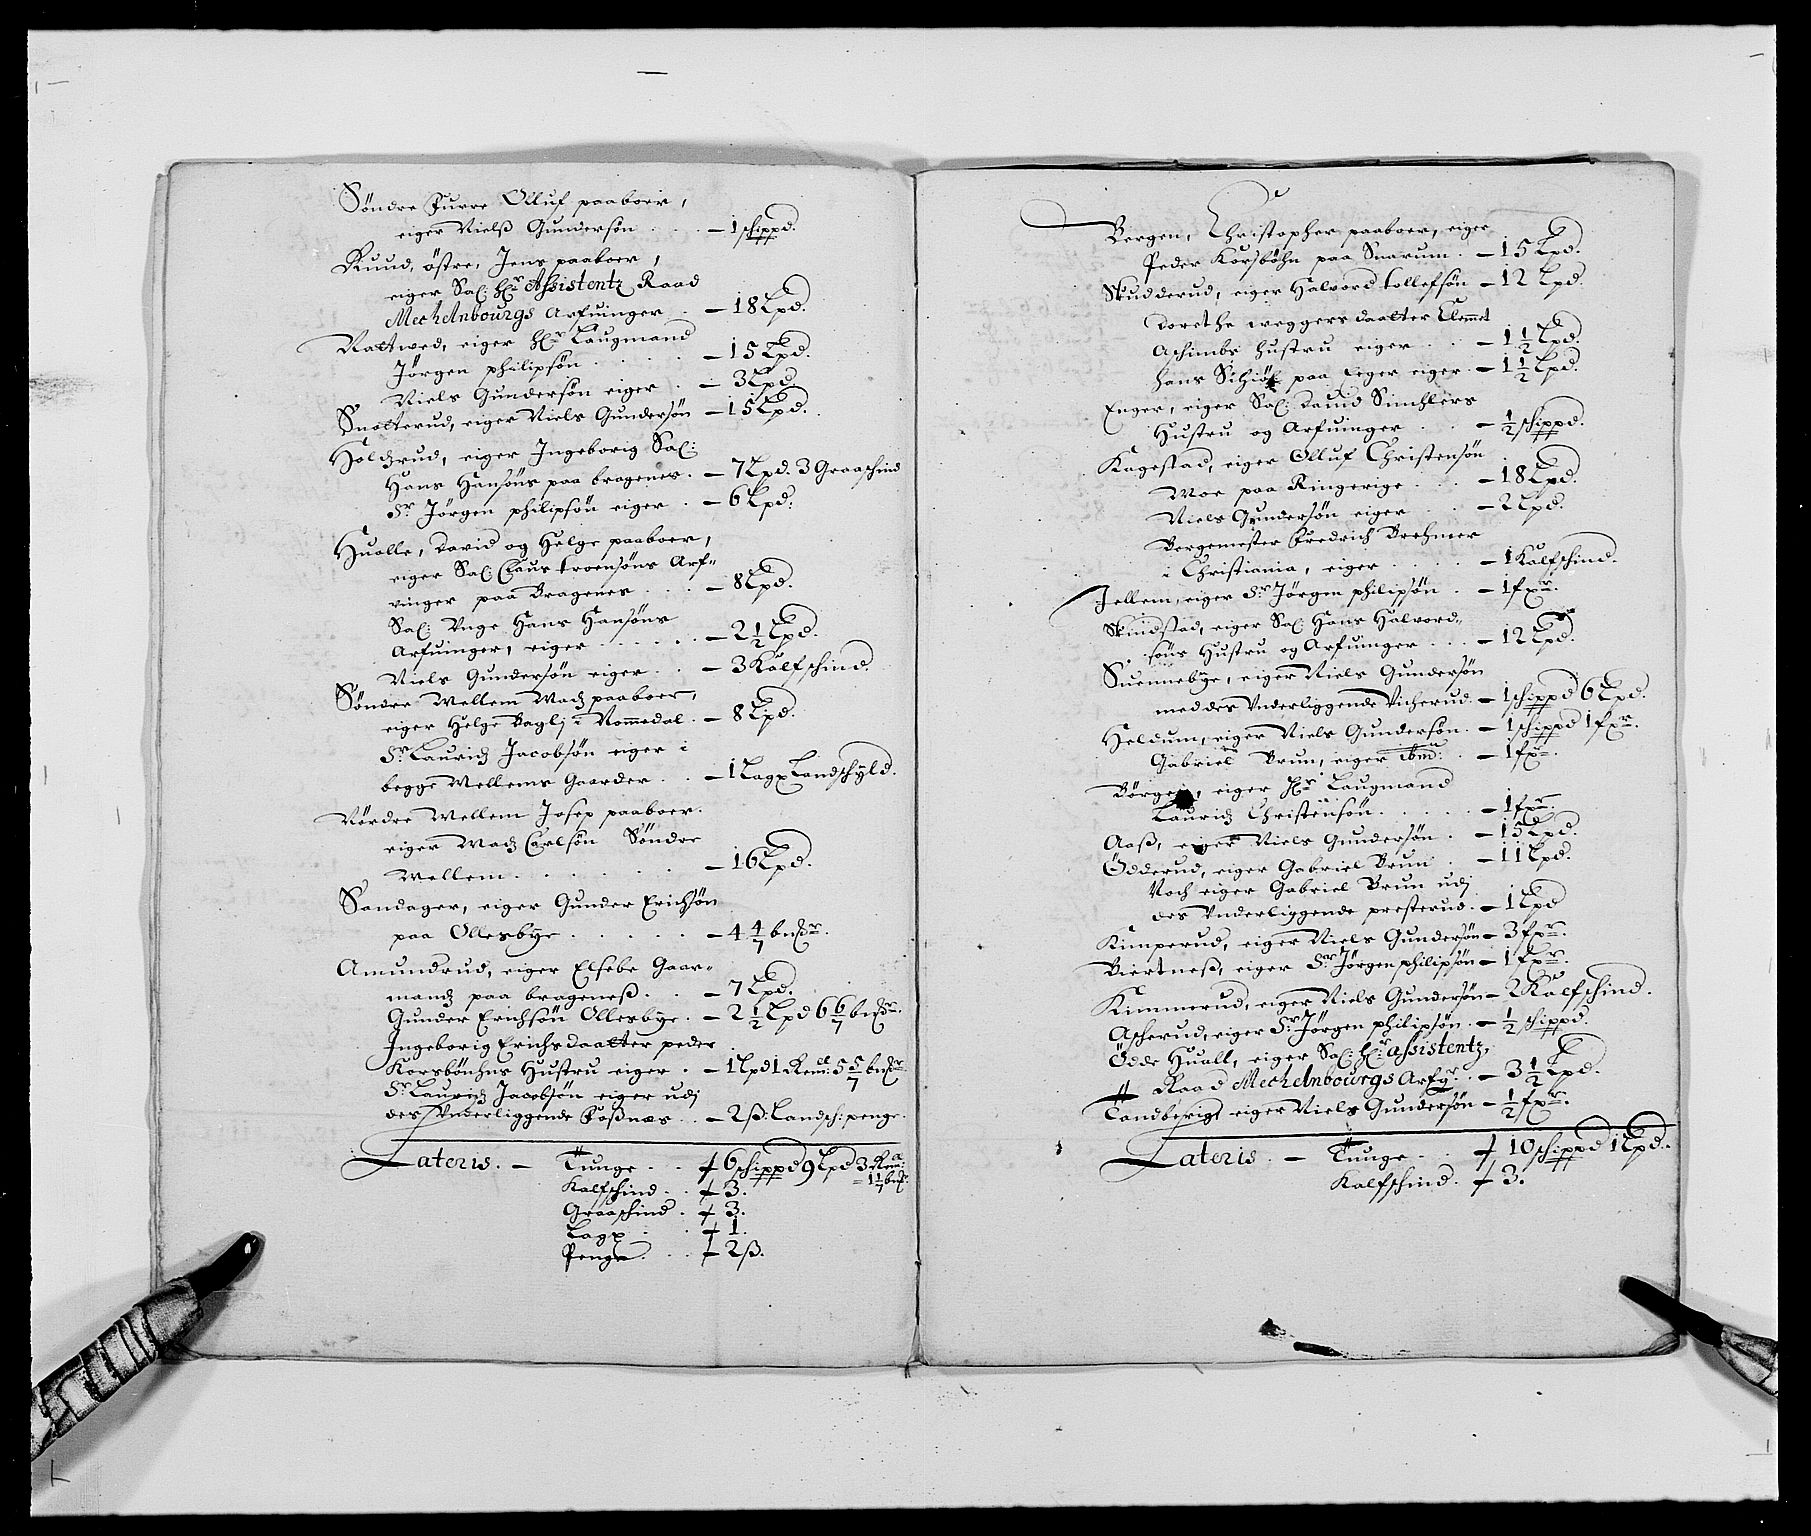 Søndre Furre Olluf paaboer,
eiger Nielß Gundersøn . . . – 1 schippd.
Ruud, østre, Jens paaboer,
eiger Sal: Hr: Assistentz Raad
Mechelnbourgs Arfuinger . – 18 Lpd.
Nattwed, eiger Hr: Laugmand
Jørgen philipsøn . . . . . – 15 Lpd.
Niels Gundersøn eiger . – 3 Lpd
Snotterud, eiger Niels Gundersøn – 15 Lpd.
Holdzrud, eiger Ingeborig Sal:
Hans Hansøns paa bragenes . – 7 Lpd. 3 Graaschind
Sr. Jørgen philipsøn eiger . – 6 Lpd:
Hualle, David og Helge paaboer,
eiger Sal: Claus troensøns Arf=
vinger paa Bragenes . . . – 8 Lpd.
Sal: Vnge Hans Hansøns
Arfuinger, eiger . . . . . – 2 1/2 Lpd.
Niels Gundersøn eiger . . – 3 Kalfschind.
Søndre Wellem Madz paaboer,
eiger Helge Baglj i Nommedal . – 8 Lpd.
Sr. Lauridz Jacobsøn eiger i
begge Wellems Gaarder . . – 1 Lagx Landschyld.
Nørdre Wellem Josep paaboer.
eiger Madz Carlsøn Søndre
Wellem . . . . . . – 16 Lpd.
Sandager, eiger Gunder Erichsøn
paa Ollesbye . . . . . – 4 4/7 bnßr.
Amundrud, eiger Elsebe Gaar=
mandz paa brageneß . . – 7 Lpd.
Gunder Erichsøn Ollesbye . – 2 1/2 Lpd 6 6/7 bnßr.
Ingeborig Erichsdaatter peder
Korsbønhns Hustru eiger . – 1 Lpd 1 Rem: 5 5/7 bnßr
Sr. Lauridz Jacobsøn eiger udj
des Vnderliggende Foßnæs . . – 2 ß: Landsch: penge.
Lateris. – Tunge . . 6 schippd 9 Lpd 3 Rem: 1 1/7 bnß.
Kalfschind . . 3.
Graaschind . 3.
Lagx . . 1.
Penge . . . 2 ß.
Bergen, Christopher paaboer, eiger
Peder Korsbøhn paa Snarum . – 15 Lpd.
Skudderud, eiger Halvord tollefsøn – 12 Lpd.
Dorethe weggersdaatter Clemet
Aschimbs hustru eiger . . – 1 1/2 Lpd.
Hans paa eiger . – 1 1/2 Lpd.
Enger, eiger Sal: David Sinchlers
Hustru og Arfuinger . . – 1/2 schippd.
Kagestad, eiger Olluf Christensøn
Moe paa Ringerige . . . – 18 Lpd.
Niels Gundersøn eiger . . – 2 Lpd.
Borgemester Fredrich Brehmer
i Christiania, eiger . . . . – 1 Kalfschind.
Jellem, eiger Sr. Jørgen philipsøn . – 1 fxr.
Skindstad, eiger Sal: Hans Halvord=
søns Hustru og Arfuinger . . – 12 Lpd.
Suennebye, eiger Niels Gundersøn
med des Vnderliggende Vicherud . – 1 schippd 6 Lpd.
Heldum, eiger Niels Gundersøn . – 1 schippd 1 fxr.
Gabriel Brun, eiger ibm: . – 1 fxr.
Børgen, eiger Hr: Laugmand
Lauridz Christensøn . . . . . – 1 fxr.
Aaß, eiger Niels Gundersøn . – 15 Lpd.
Ødderud, eiger Gabriel Brun . – 11 Lpd.
Noch eiger Gabriel Brun udj
des Vnderliggende presterud . – 1 Lpd
Kimperud, eiger Niels Gundersøn – 3 fxr.
Viertneß, eiger Sr. Jørgen philipsøn – 1 fxr.
Kimmerud, eiger Niels Gundersøn – 2 Kalfschind.
Ascherud, eiger Sr. Jørgen philipsøn . – 1/2 schippd.
Ødde Huall, eiger Sal: Hr: Assistentz,
Raad Mechelnbourgs Arfgr. . – 3 1/2 Lpd.
Tandberig, eiger Niels Gundersøn – 1/2 fxr.
Lateris. – Tunge . . 10 schippd 1 Lpd.
Kalfschind . 3.